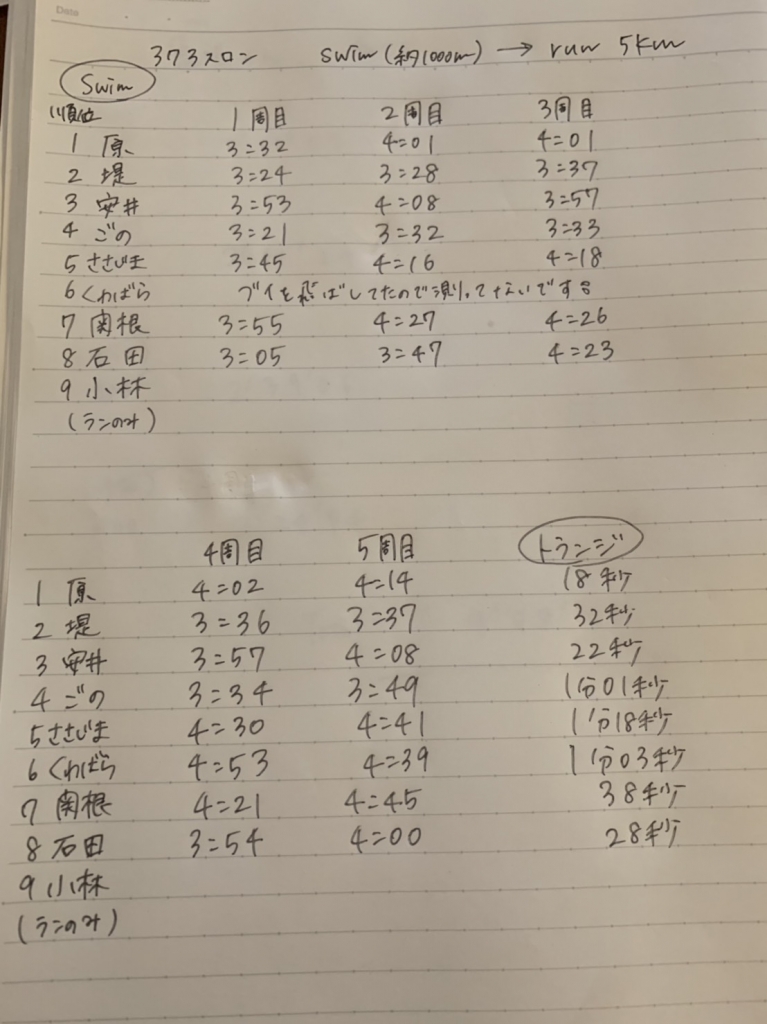 Date
373スロン swim (約1000m) → run 5km
Swim
順位 1周目 2周目 3周目
1 原 3:32 4:01 4:01
2 堤 3:24 3:28 3:37
3 安井 3:53 4:08 3:57
4 ごの 3:21 3:32 3:33
5 ささじま 3:45 4:16 4:18
6 くわばら ブイを飛ばしてたので測ってないです
7 関根 3:55 4:27 4:26
8 石田 3:05 3:47 4:23
9 小林
(ランのみ)
4周目 5周目 トランジ
1 原 4:02 4:14 18秒
2 堤 3:36 3:37 32秒
3 安井 3:57 4:08 22秒
4 ごの 3:34 3:49 1分01秒
5 ささじま 4:30 4:41 1分18秒
6 くわばら 4:53 4:39 1分03秒
7 関根 4:21 4:45 38秒
8 石田 3:54 4:00 28秒
9 小林
(ランのみ)